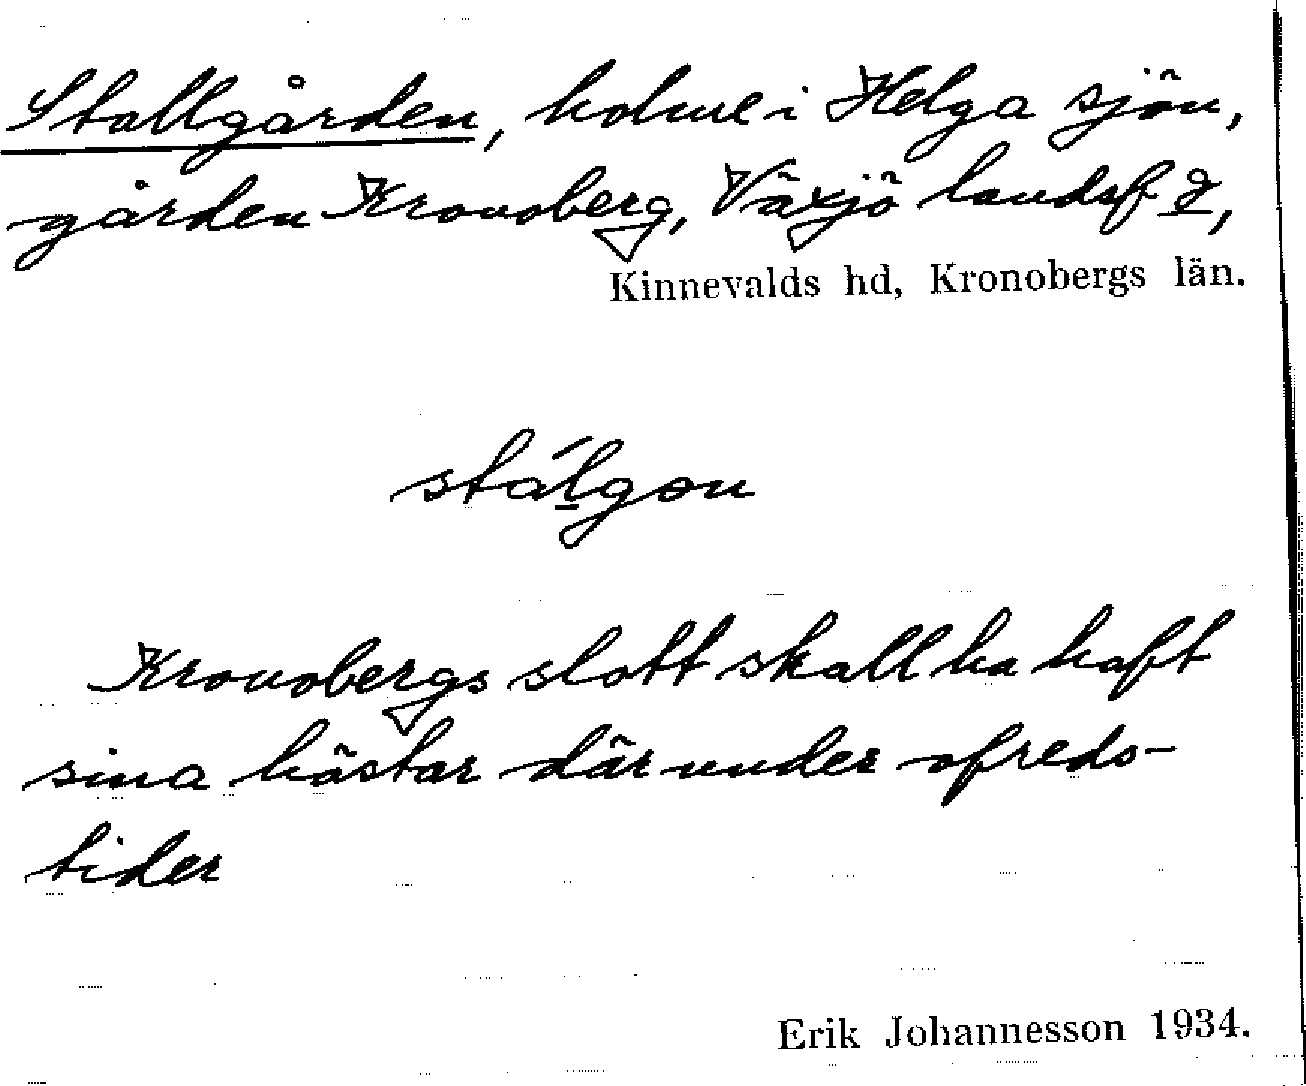 Stallgården, holme i Helga sjön,
gården Kronoberg, Växjö landsf d,
Kinnevalds hd, Kronobergs län.
stálgon
Kronobergs slott skall ha haft
sina hästar där under ofreds-
tider
Erik Johannesson 1934.